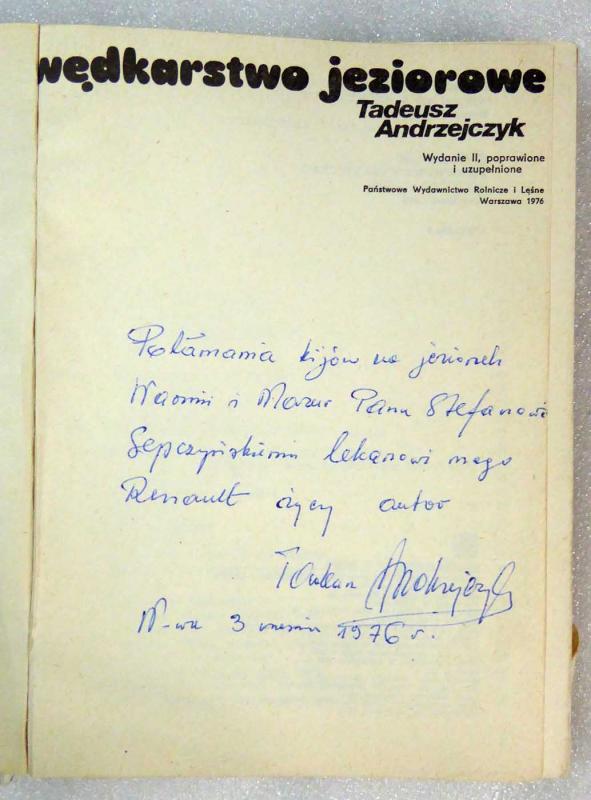 wędkarstwo jeziorowe
Tadeusz
Andrzejczyk
Wydanie II, poprawione
i uzupełnione
Państwowe Wydawnictwo Rolnicze i Leśne
Warszawa 1976
Połamania kijów na jeziorach
Warmii i Mazur Panu Stefanowi
Sepczyńskiemu lekarzowi mego
Renault życzy autor
Tadeusz Andrzejczyk
W-wa 3 wrześnie 1976 r.